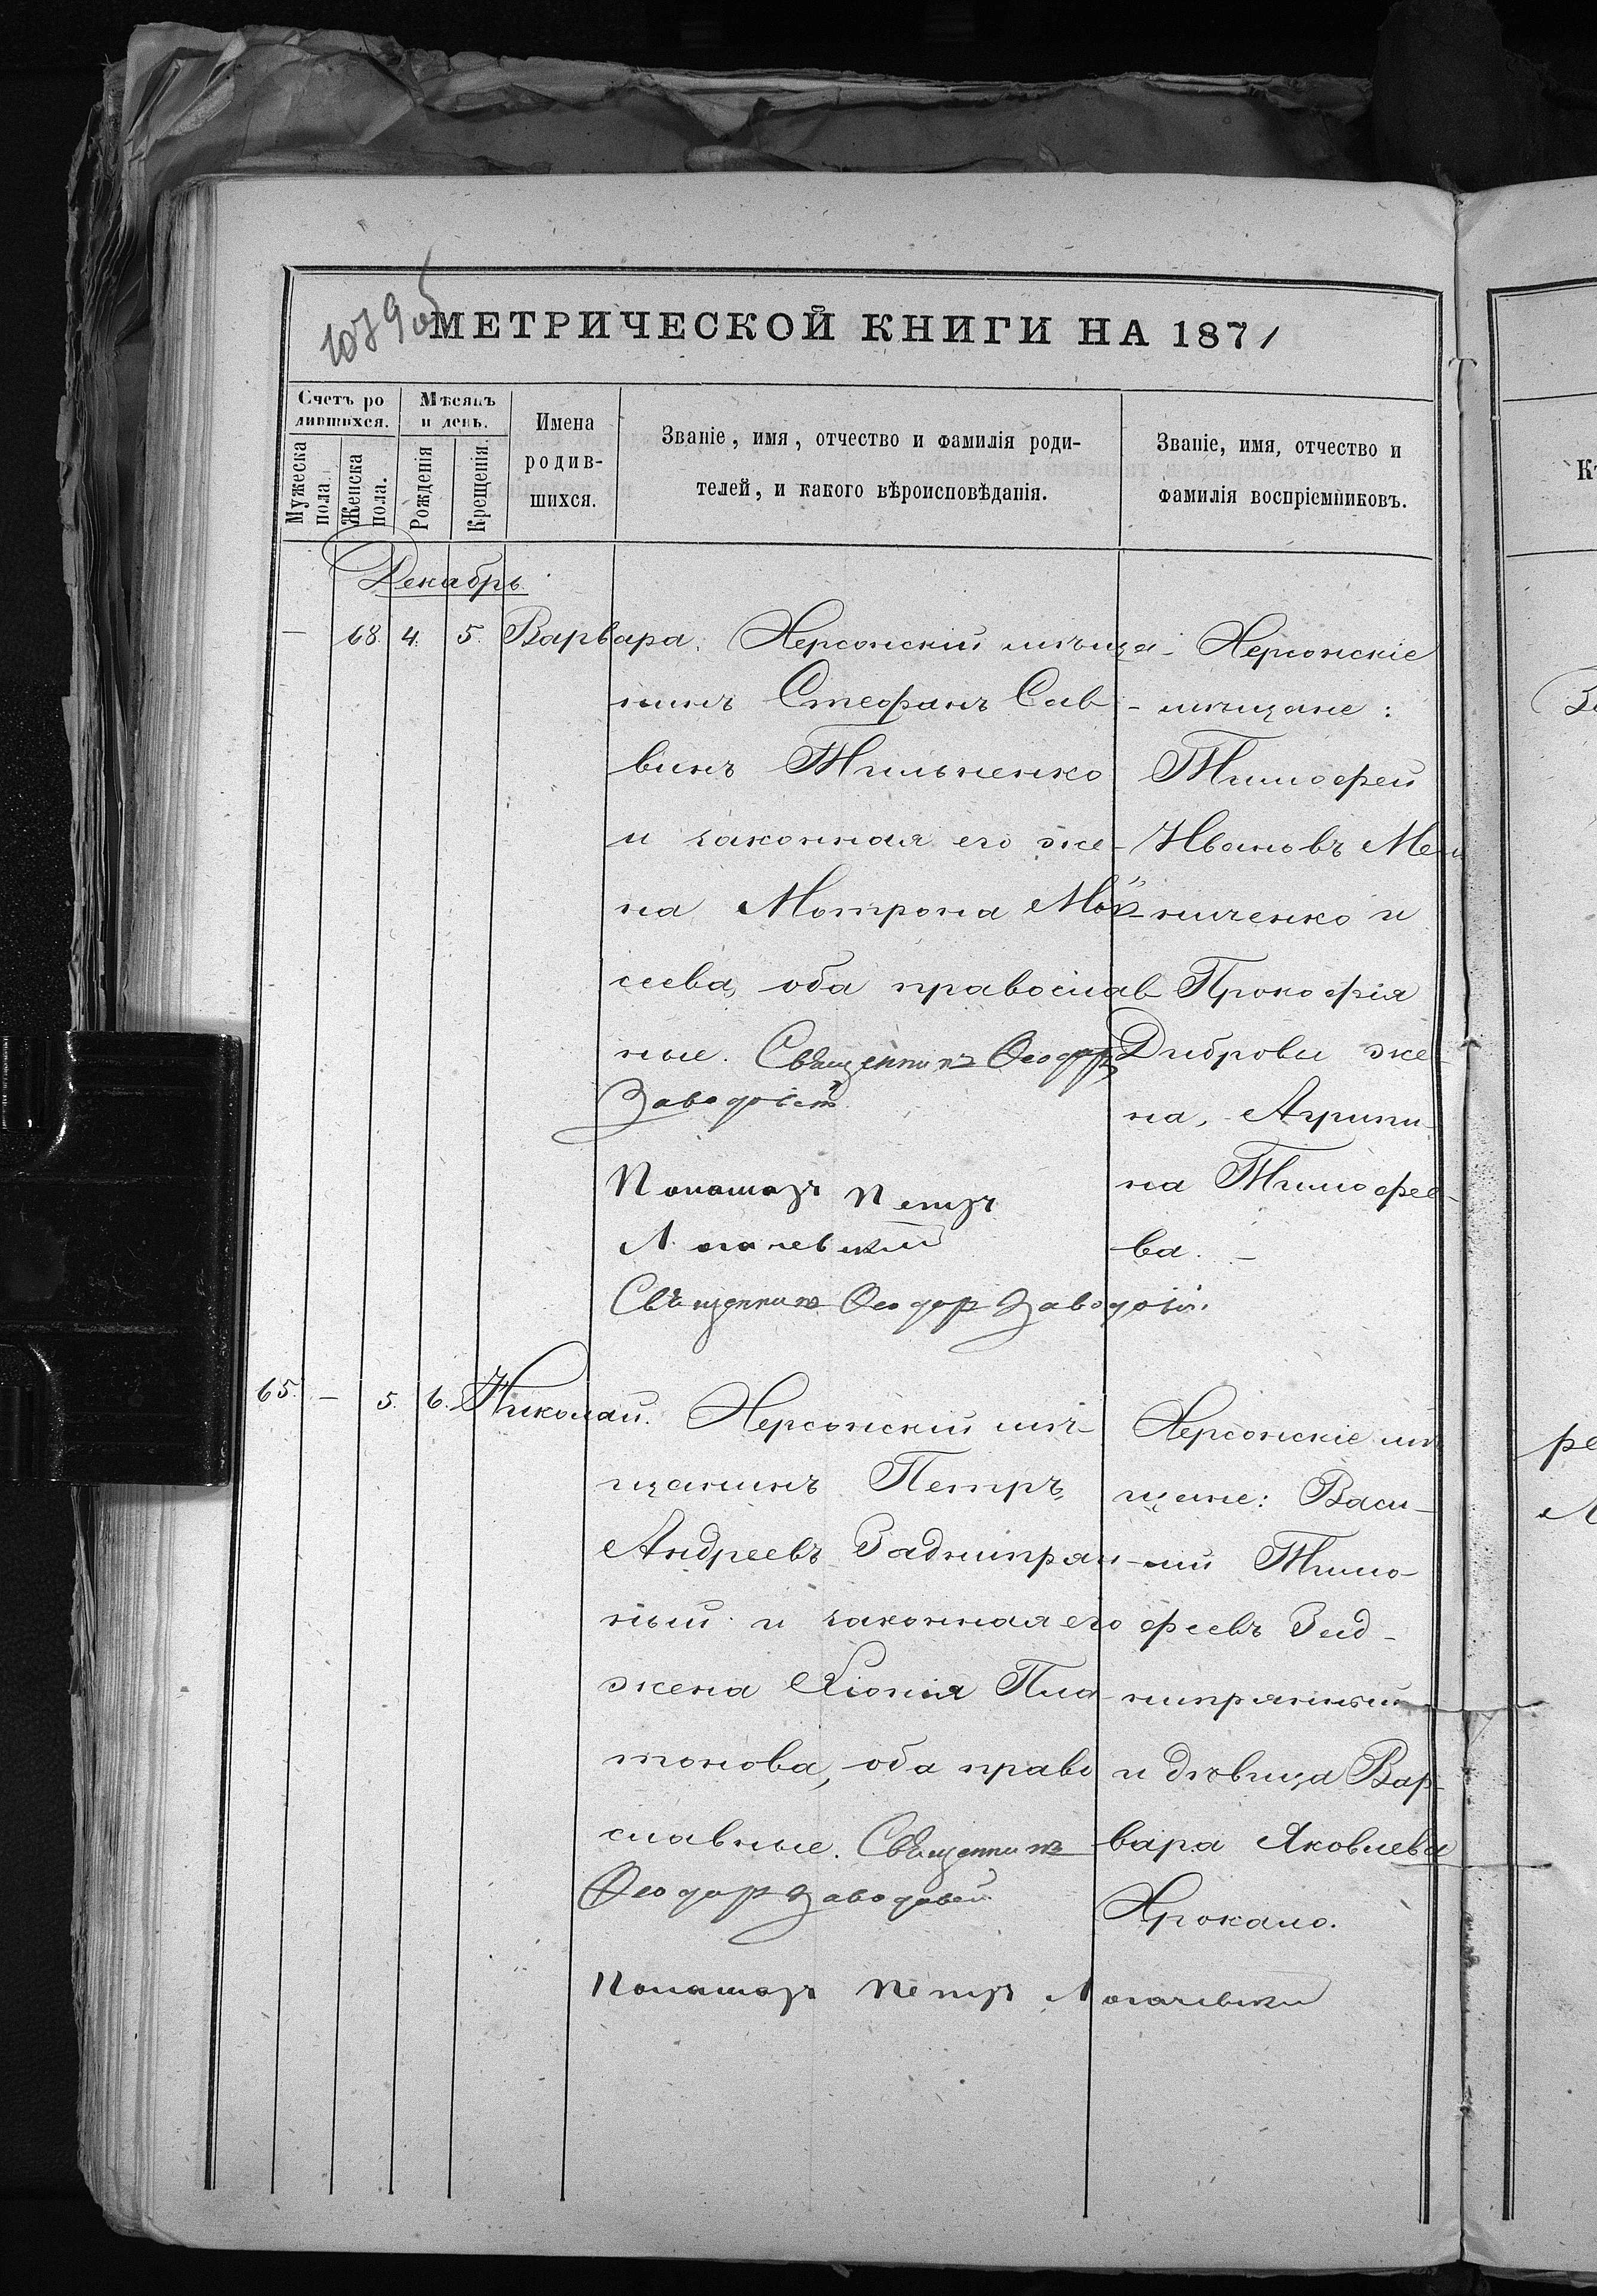 1079об
МЕТРИЧЕСКОЙ КНИГИ НА 1871
Счетъ ро
дившихся.
Мѣсяцъ
и день.
Мужеска
пола
Женска
пола.
Рожденія
Крещенія.
Имена
родив-
шихся.
Званіе, имя, отчество и фамилія роди-
телей, и какого вѣроисповѣданія.
Званіе, имя, отчество и
фамилія воспріемниковъ.
Декабрь.
— 68. 4. 5. Варвара. Херсонскій мѣща-
нинъ Стефанъ Сав-
винъ Тильненко
и законная его же-
на Мотрона Мои-
сеева, оба православ
ные. Священникъ Ѳеодоръ
Заводовскій
Пономарь Петръ
Священникъ Ѳеодор
Херсонскіе
мѣщане:
Тимофей
Ивановъ
ниченко и
Прокофія
Дибровы же-
на, Агрипи-
на Тимофее-
ва. —
65. — 5. 6. Николай. Херсонскій мѣ-
щанинъ Петръ
Андреевъ Заднипрян-
ный и законная его
жена Хіонія Пла-
тонова, оба право
славные. Священникъ
Ѳеодор
Пономарь Петръ
Херсонскіе мѣ
щане: Васи-
лій Тимо-
феевъ Зад-
нипрянный
и дѣвица Вар-
вара Яковлева
Хрокало.